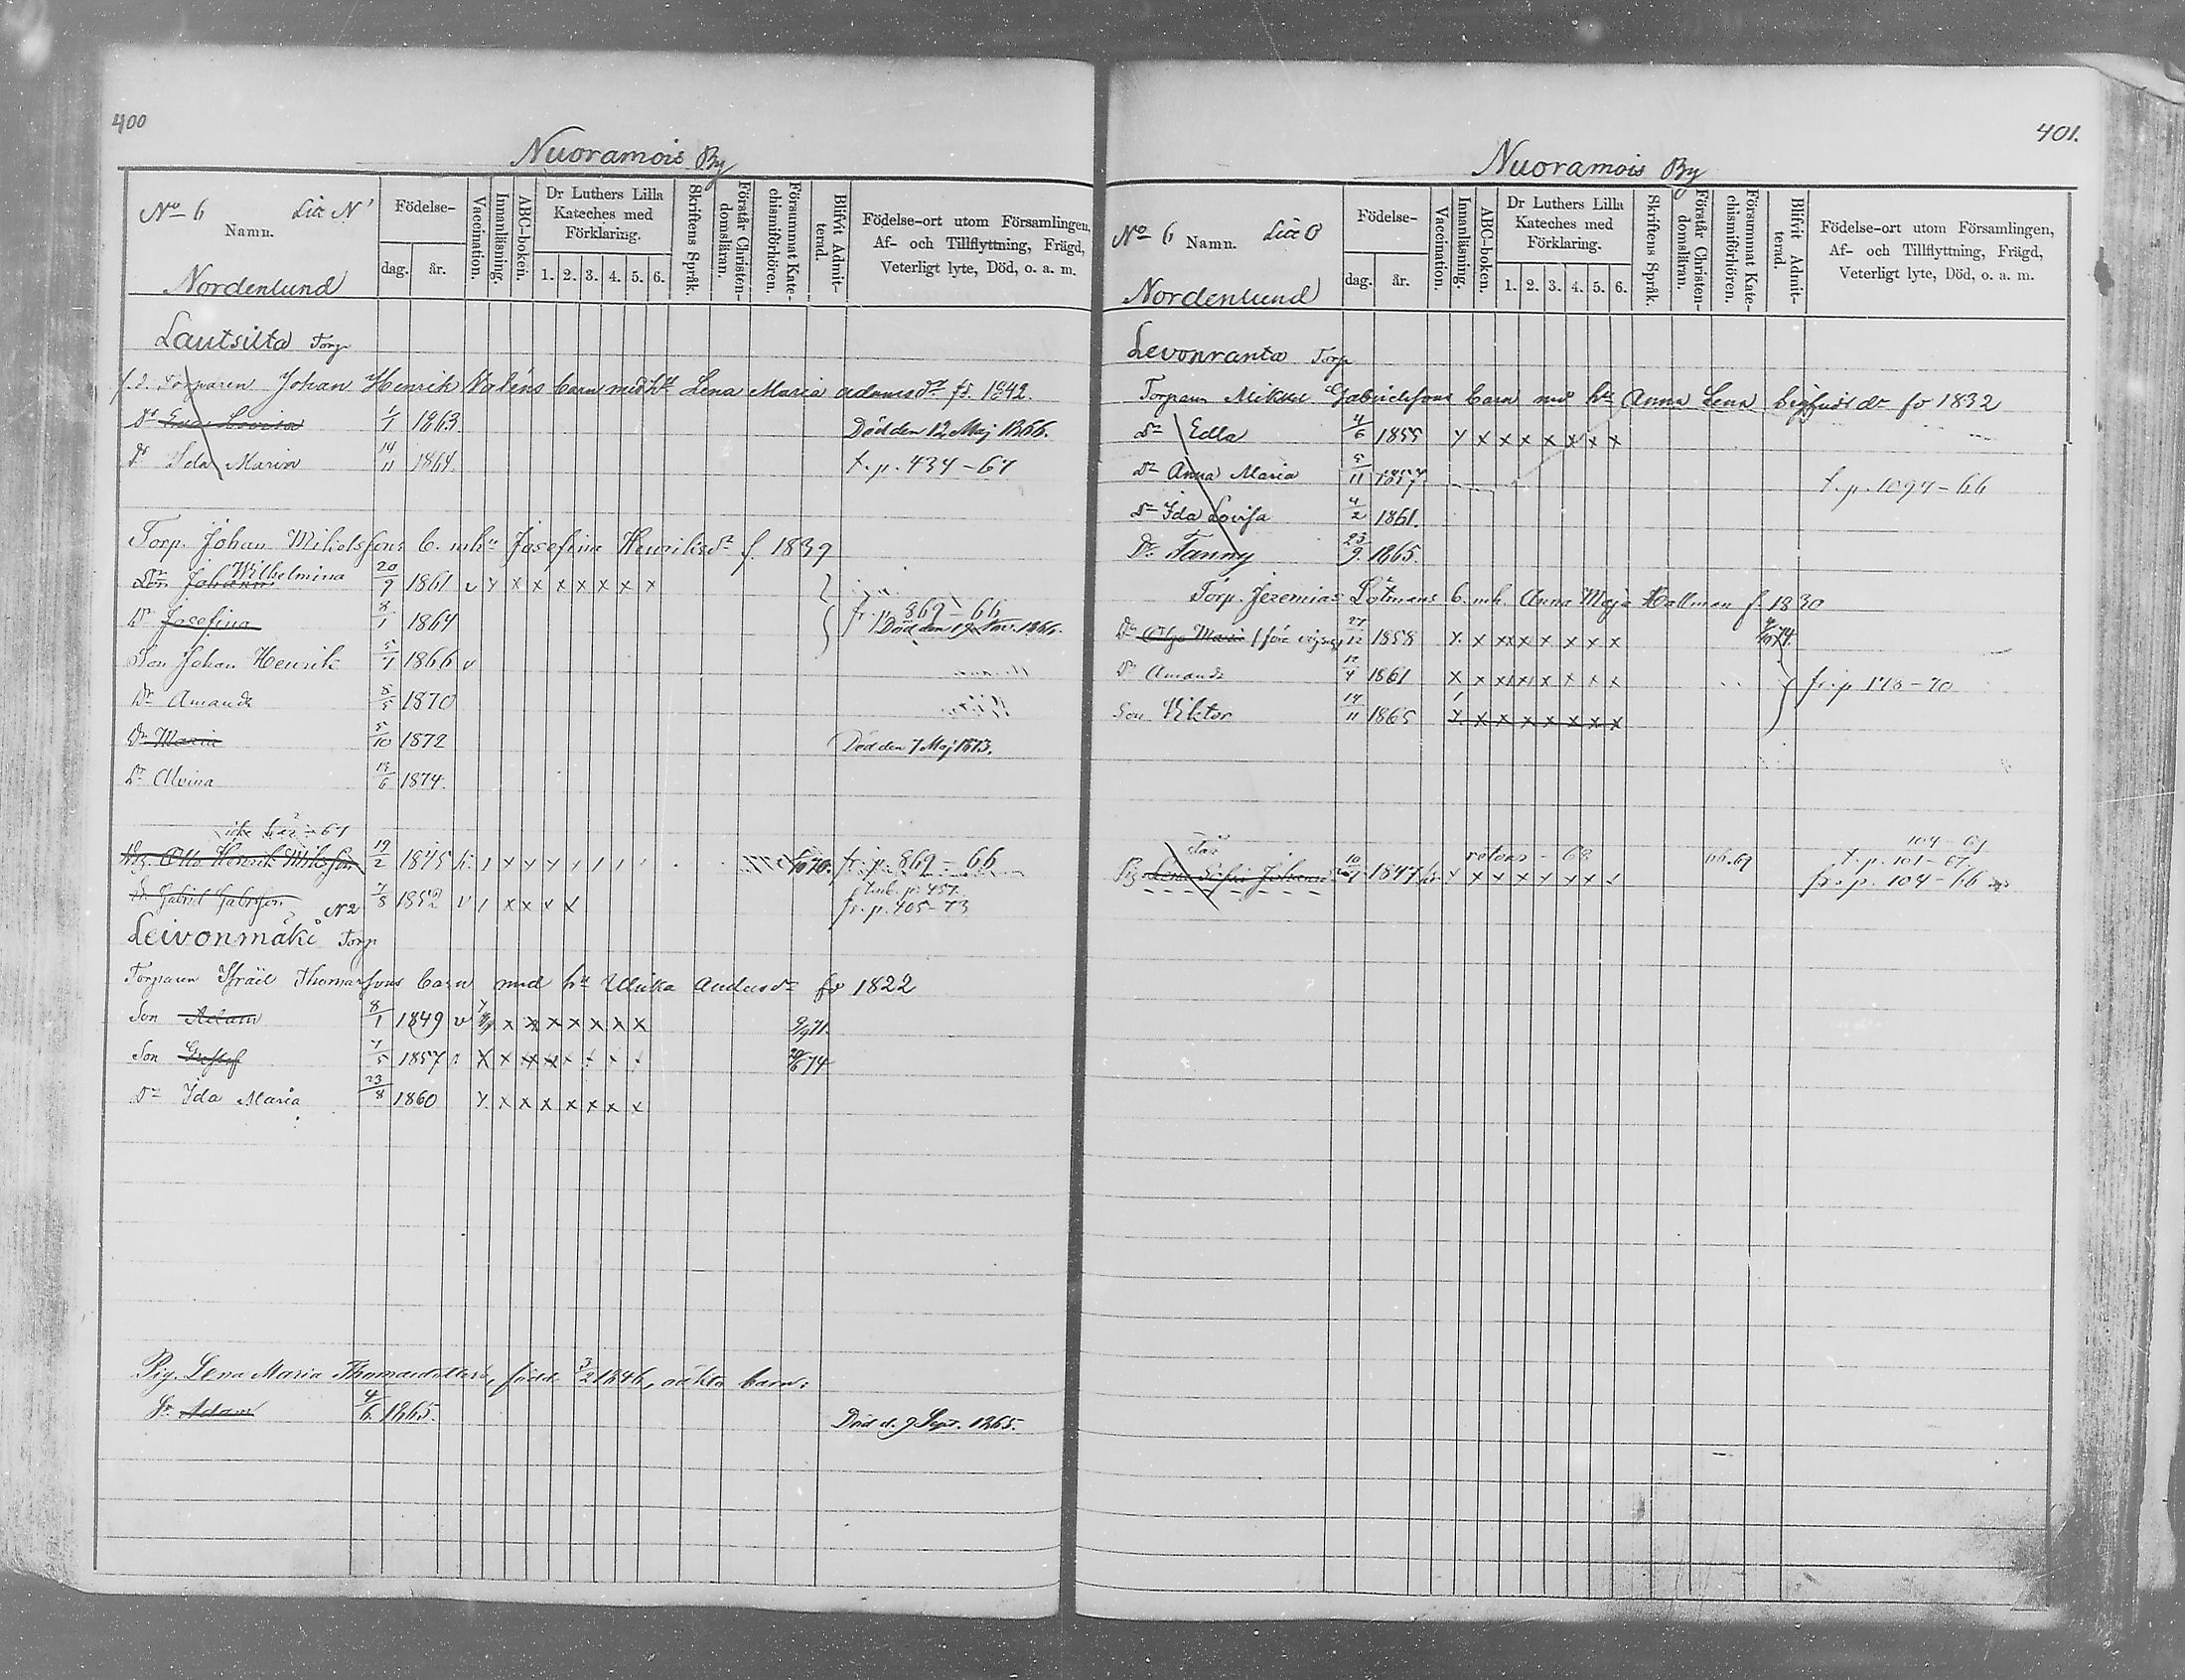 400
Nuoramois By
No 6 Litt N
Namn.
Födelse-
dag. år.
Vaccination.
Innanläsning.
ABC-boken.
Dr Luthers Lilla Kateches med Förklaring.
1. 2. 3. 4. 5. 6.
Skriftens Språk.
Förstår Christendomsläran.
Försummat Katechismiförhören.
Blifvit Admitterad.
Födelse-ort utom Församlingen,
Af- och Tillflyttning, Frägd,
Veterligt lyte, Död, o. a. m.
Nordenlund
Lautsilta Torp
f.d. Torparen Johan Henrik Naléns barn med h. Lena Maria adamsdr fö. 1842.
Dr Lovisa 1/1 1863 Död den 12 Maj 1866.
Dr Ida Maria 14/11 1864 t. p. 434-67
Torp. Johan Mikelssons b. m h. Josefina Henriksdr f. 1839
Wilhelmina
Johanna 20/9 1861 v y x x x x x x x
Dr Josefina 8/1 1864 fr. p. 869-66
Död den 1866.
Son Johan Henrik 5/1 1866 v
Dr Amanda 8/5 1870
Dr Maria 5/10 1872 Död den 7 Maj 1873.
Dr Alvina 19/6 1874.
icke här -67
Otto Henrik Mikelsson 19/2 1845 fr. p. 869-66
Gabriel 1/8 1852 p. 457
fr. p. 405-73
N2
Leivonmäki Torp
Torparen Israël Thomassons barn med h. Ulrika Andersdr fö 1822
Son Adam 8/1 1849 v x x x x x x x 71.
Son Gustaf 7/5 1857 74
Dr Ida Maria 23/8 1860 y x x x x x x x
Pig. Lena Maria Thomasdotters, född 3/2 1846, oäkta barn:
Adam 4/6 1865. Död d. 9 Sept. 1865.
401.
Nuoramois By
No 6 Namn. Litt O
Födelse-
dag. år.
Vaccination.
Innanläsning.
ABC-boken.
Dr Luthers Lilla Kateches med Förklaring.
1. 2. 3. 4. 5. 6.
Skriftens Språk.
Förstår Christendomsläran.
Försummat Katechismiförhören.
Blifvit Admitterad.
Födelse-ort utom Församlingen,
Af- och Tillflyttning, Frägd,
Veterligt lyte, Död, o. a. m.
Nordenlund
Levonranta Torp
Torparn Mikkel Gabrielsons barn med h. Anna Lena Sigfridsdr fö 1832
Dr Edla 4/6 1855 y x x x x x x x
Dr Anna Maria 5/11 1857 t. p. 1094-66
Dr Ida Lovisa 4/2 1861.
Dr Fanny 23/9 1865.
Torp. Jeremias Lötmans b. m h. Anna Maja Hallman f. 1830
Dr Maria 27/12 1858 74.
Dr Amanda 12/4 1861 fr. p 178-70
Son Viktor 14/11 1865
104-67
retour - 68 t. p. 101-67
Pig. Lena Sofia 1847 68.69 fr. p. 104-66